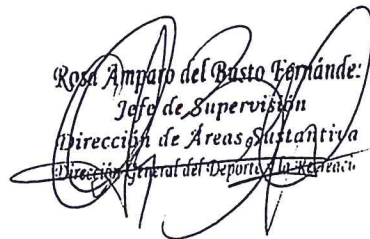 Rosa Amparo del Busto Fernández
Jefe de Supervisión
Dirección de Áreas Sustantiva
Dirección General del Deporte y la Recreación